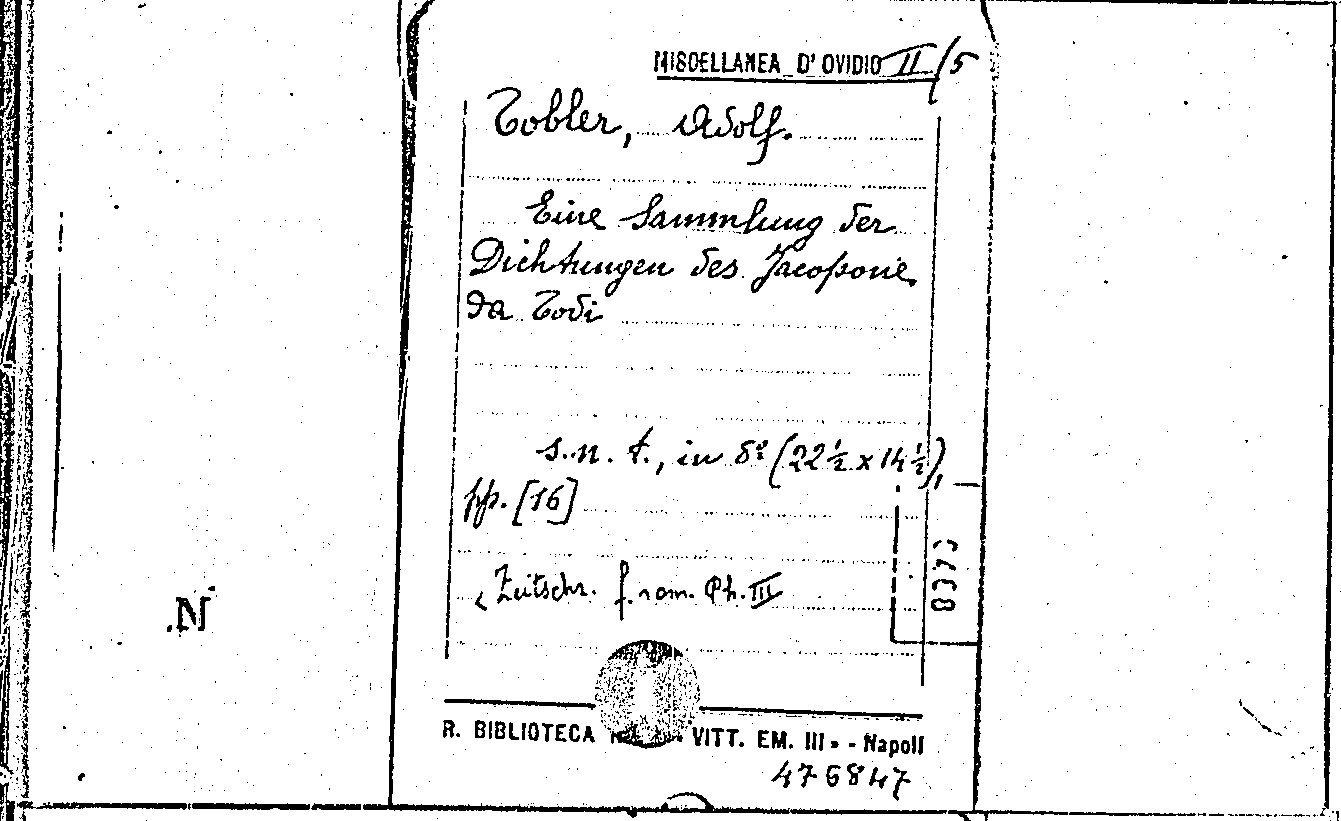 MISCELLANEA D'OVIDIO II/5
Tobler, Adolf.
Eine Sammlung der
Dichtungen des Jacopone
da Todi
s. n. t., in 8º (22 ½ x 14 ½),
pp. [16]
Zeitschr. f. rom. Ph. III
.N
R. BIBLIOTECA VITT. EM. III» - Napoli
476847